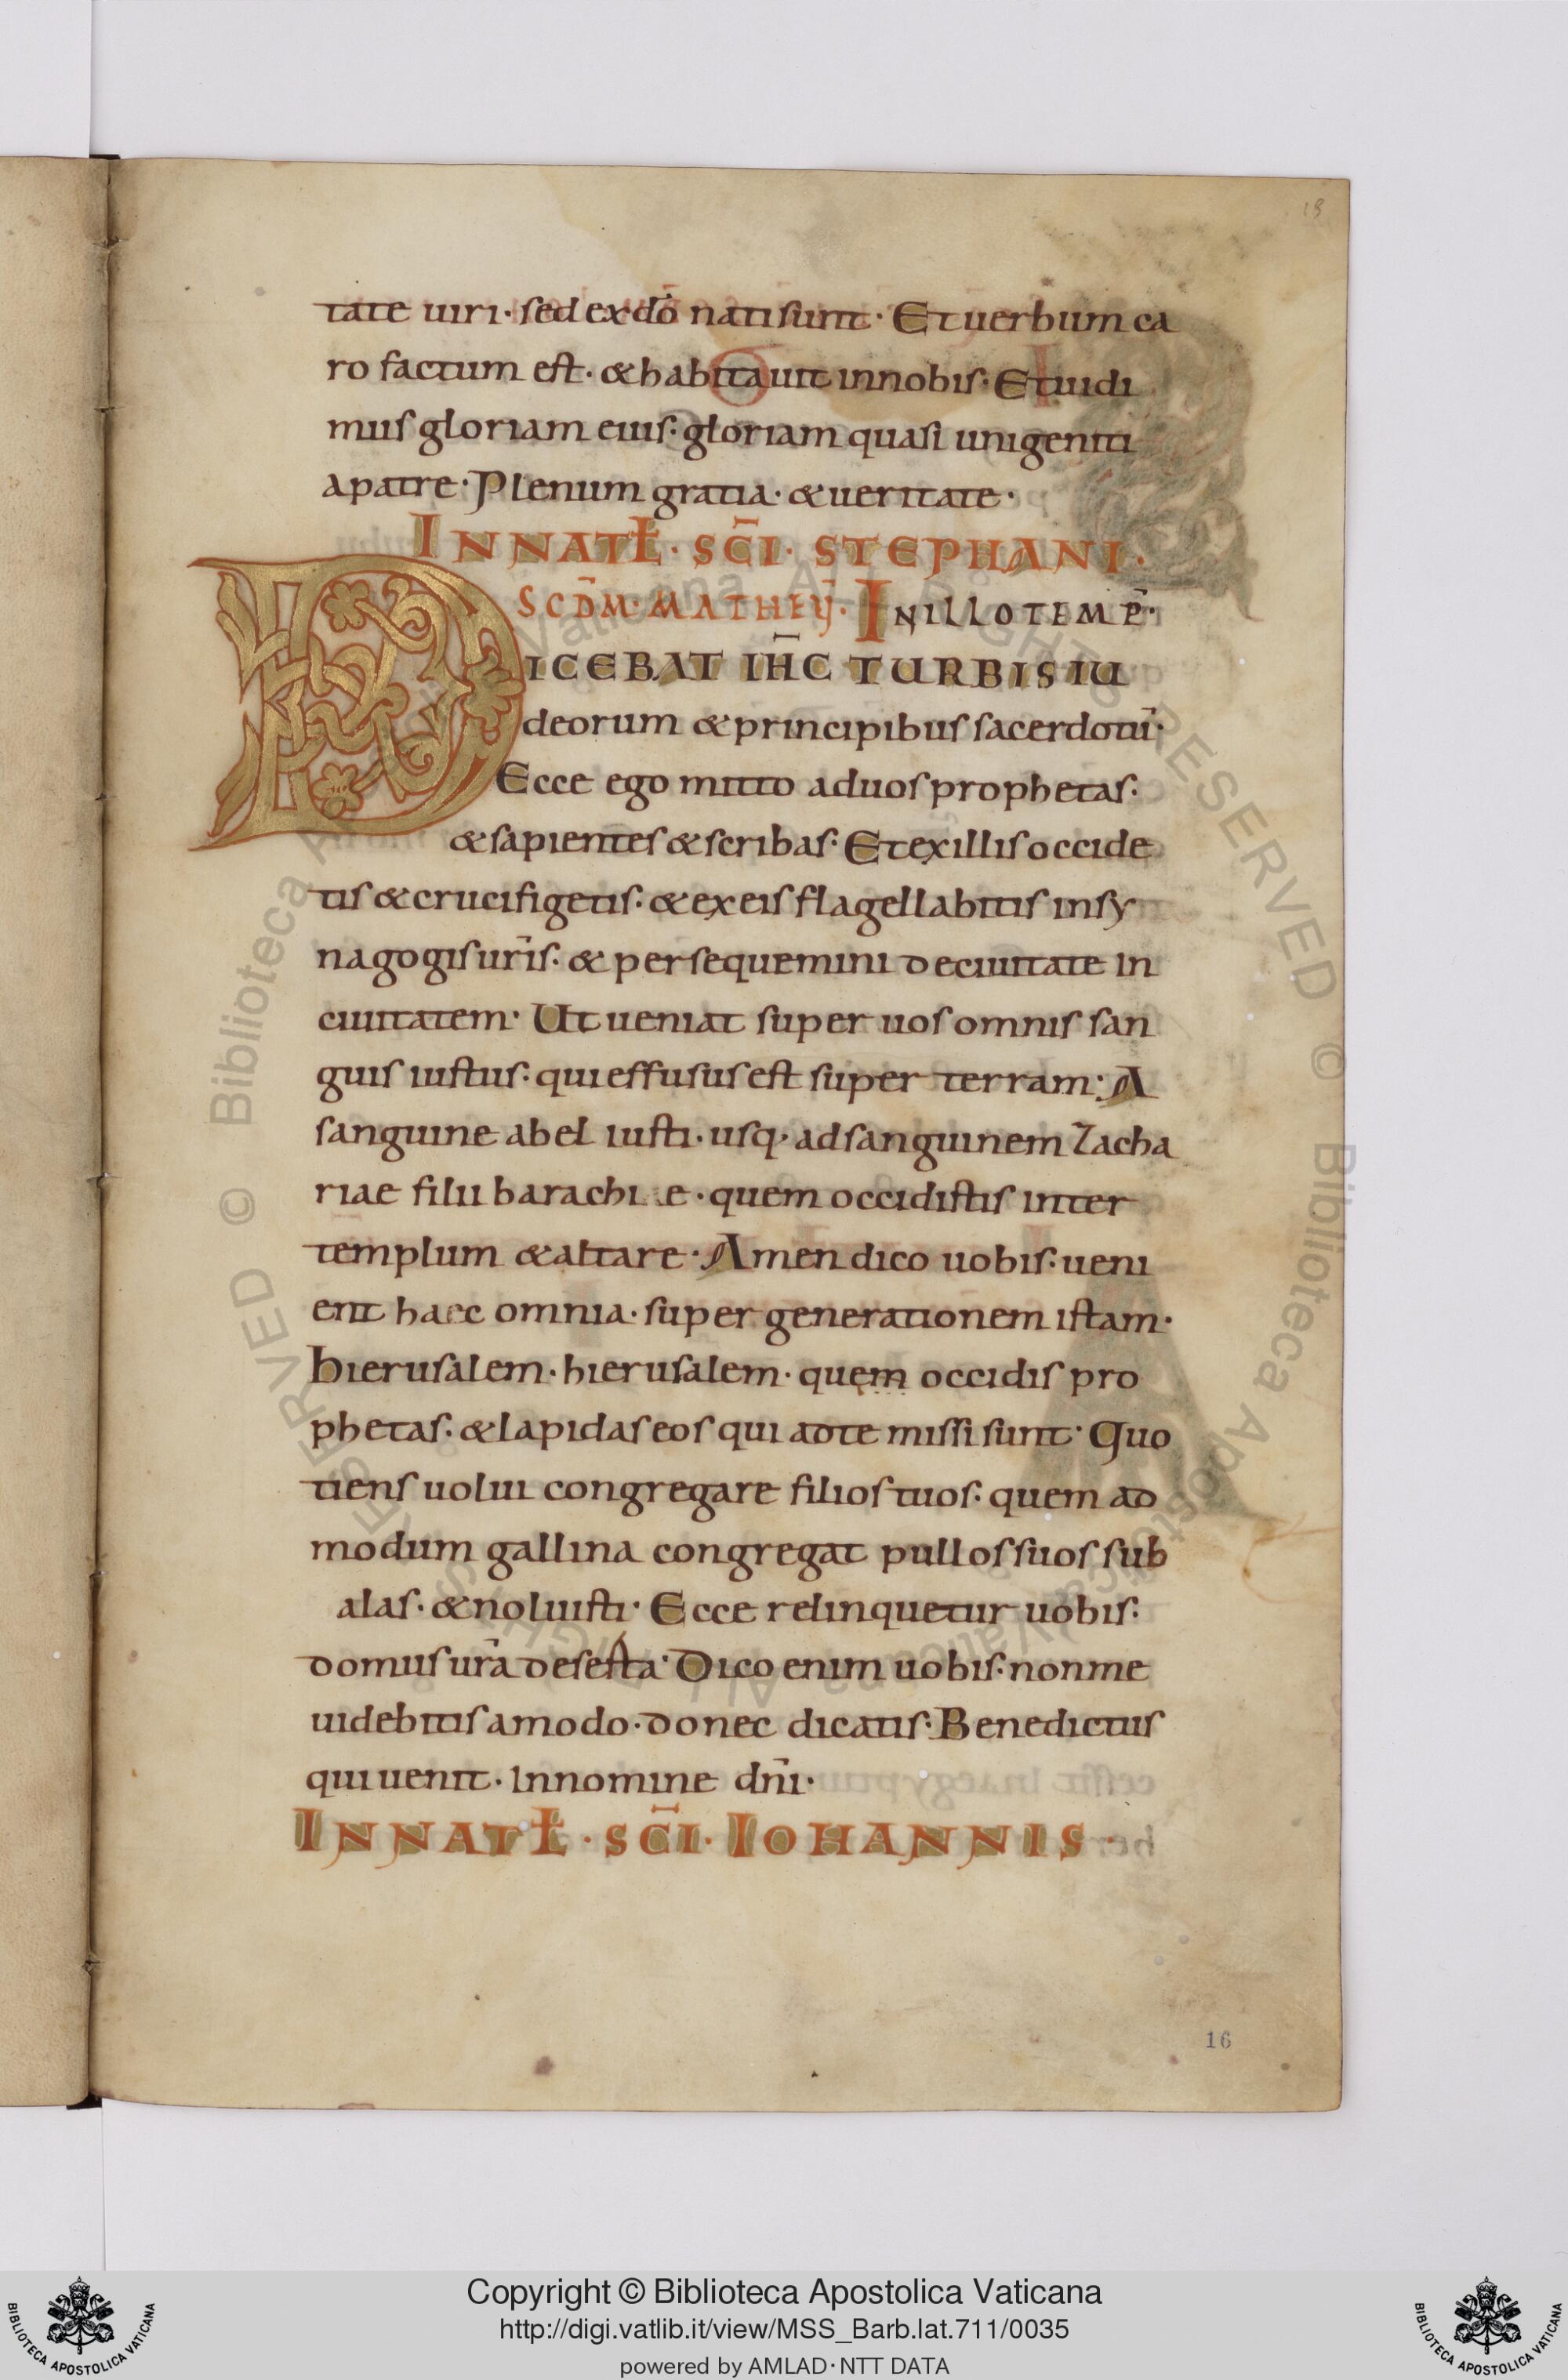 tate uiri· sed ex dō nati sunt· Et uerbum ca
ro factum est· & habitauit in nobis· Et uidi
mus gloriam eius· gloriam quasi unigeniti
a patre· Plenum gratia· & ueritate·
IN NATŁ· SC̄I· STEPHANI·
SCDM̄· MATHEŪ· IN ILLO TEMP̄·
DICEBAT IH̄C TURBIS IU
deorum & principibus sacerdotū·
Ecce ego mitto ad uos prophetas·
& sapientes & scribas· Et ex illis occide
tis & crucifigetis· & ex eis flagellabitis in sy
nagogis ur̄is· & persequemini de ciuitate in
ciuitatem· Ut ueniat super uos omnis san
guis iustus· qui effusus est super terram· A
sanguine abel iusti· usq· ad sanguinem Zacha
riae filii barachi e· quem occidistis inter
templum & altare· Amen dico uobis· ueni
ent haec omnia· super generationem istam·
hierusalem· hierusalem· quem occidis pro
phetas· & lapidas eos qui ad te missi sunt· Quo
tiens uolui congregare filios tuos· quem ad
modum gallina congregat pullos suos sub
alas· & noluisti· Ecce relinquetur uobis·
domus ur̄a deserta· Dico enim uobis· non me
uidebitis amodo· donec dicatis· Benedictus
qui uenit· In nomine dn̄i·
IN NATŁ· SC̄I· IOHANNIS·
16
Copyright © Biblioteca Apostolica Vaticana
http://digi.vatlib.it/view/MSS_Barb.lat.711/0035
powered by AMLAD·NTT DATA
BIBLIOTECA APOSTOLICA VATICANA
BIBLIOTECA APOSTOLICA VATICANA